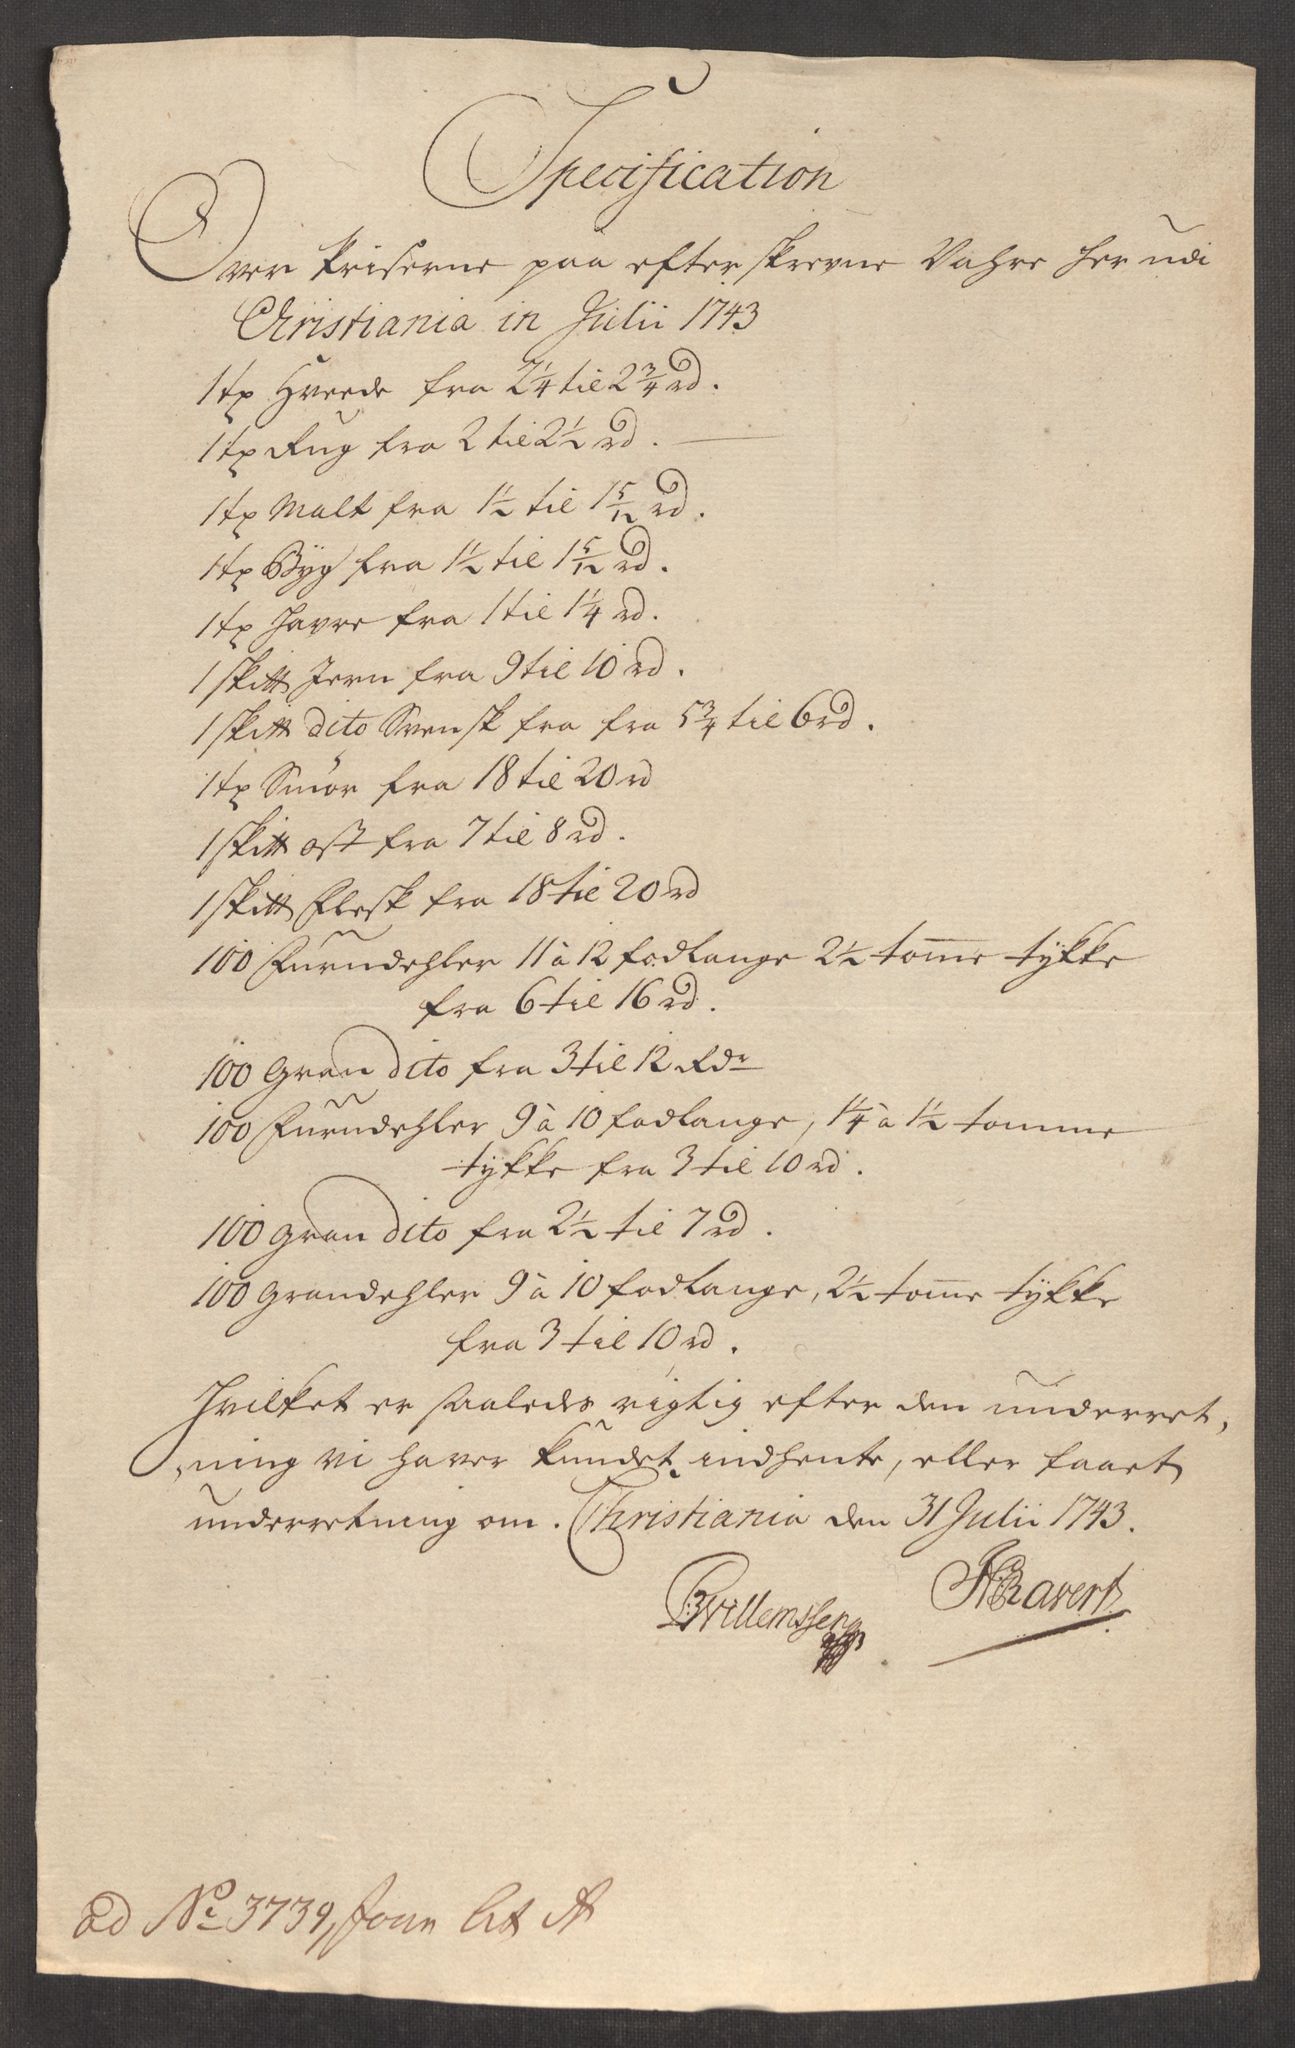 Specification
Over Priserne paa efterskrevne Vahre her udi
Christiania in Julii 1743
1 tx Hvede fra 2 1/4 til 2 3/4 rd.
1 tx Rug fra 2 til 2 1/2 rd.
1 tx Malt fra 1 1/2 til 1 5/12 rd.
1 tx Byg fra 1 1/2 til 1 5/12 rd.
1 tx Havre fra 1 til 1 1/4 rd.
1 skitt Jern fra 9 til 10 rd.
1 skitt dito Svensk fra fra 5 3/4 til 6 rd.
1 tx Smör fra 18 til 20 rd
1 skitt ost fra 7 til 8 rd.
1 skitt Flesk fra 18 til 20 rd
100 Furudehler 11 à 12 fod lange 2 1/2 tome tykke
fra 6 til 16 rd.
100 Gran dito fra 3 til 12 Rdr
100 Furudehler 9 à 10 fod lange, 1 1/4 à 1 1/2 tomme
tykke fra 3 til 10 rd.
100 Gran dito fra 2 1/2 til 7 rd.
100 Grandehler 9 à 10 fod lange, 2 1/2 tome tykke
fra 3 til 10 rd.
Hvilket er saaledes rigtig efter den underret,
ning vi haver kundet indhente, eller faaet
underretning om. Christiania den 31 Julii 1743.
BWillemssen HRavert
ad No 3739, Jour Lit A